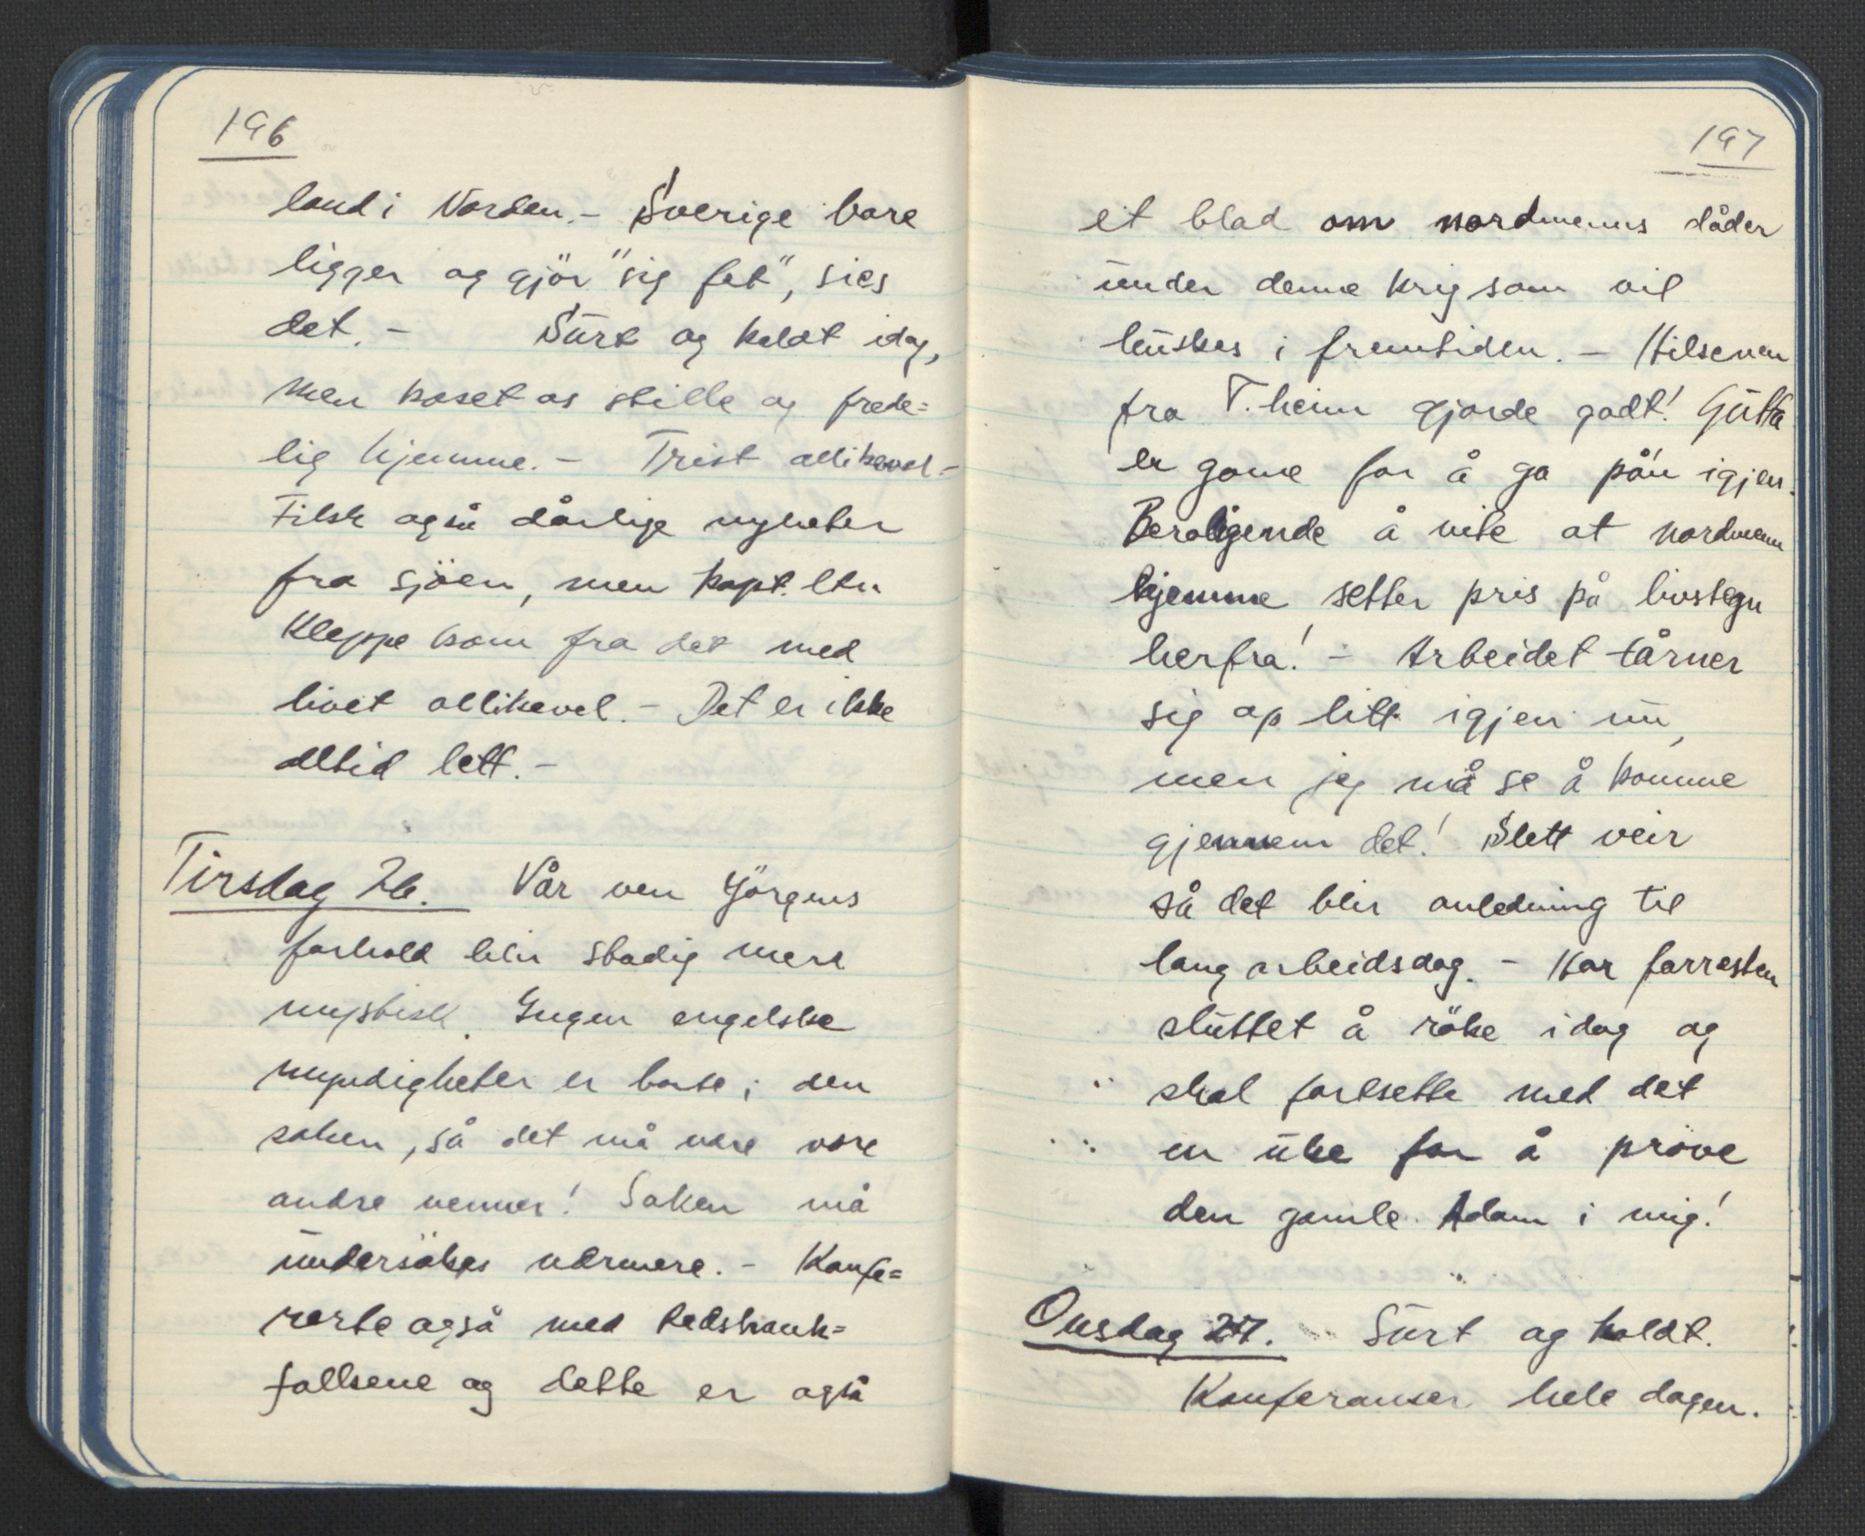 196
land i Norden. - Sverige bare
ligger og gjör "sig fet", sies
det. - Surt og koldt idag,
men koset os stille og frede=
lig hjemme. - Trist allikevel -
Fikk også dårlige nyheter
fra sjöen, men kapt. ltn
Kleppe kom fra det med
livet allikevel. - Det er ikke
altid lett. -
Tirsdag 26. Vår ven Jörgens
forhold blir stadig mere
mystisk. Ingen engelske
myndigheter er borte i den
saken, så det må være våre
andre venner! Saken må
undersökes nærmere. - Konfe=
rerte også med Redshank=
folkene og dette er også
197
et blad om nordmenns dåder
under denne krig som vil
huskes i fremtiden. - Hilsenen
fra T.heim gjorde godt! Gutta
er game for å gå på'n igjen.
Beroligende å vite at nordmenn
hjemme setter pris på livstegn
herfra! - Arbeidet tårner
sig op litt igjen nu,
men jeg må se å komme
gjennem det! Slett veir
så det blir anledning til
lang arbeidsdag. - Har forresten
sluttet å röke idag og
skal fortsette med det
en uke for å pröve
den gamle Adam i mig!
Onsdag 27. Surt og koldt.
Konferanser hele dagen.